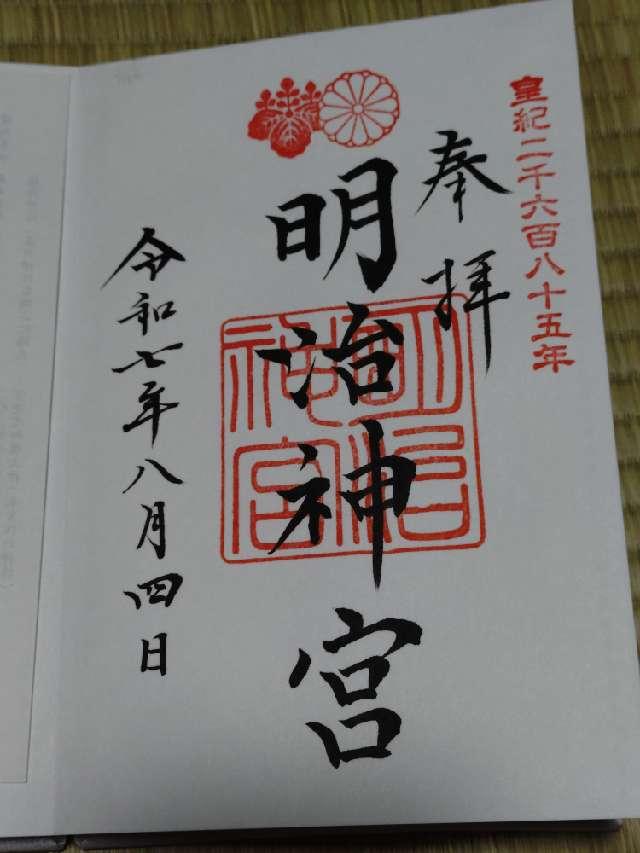 皇紀二千六百八十五年
奉拝
明治神宮
明治神宮
令和七年八月四日